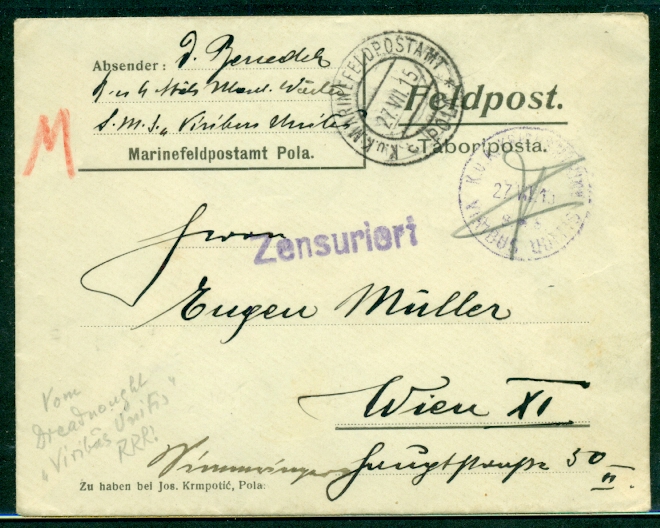 Absender: J. Benedek
S.M.S. „Viribus Unitis"
Marinefeldpostamt Pola.
K.u.K. MARINEFELDPOSTAMT POLA
27.VII.15
Feldpost.
Tábori posta.
M
K.u.K.
27.VII.15
Zensuriert
Herrn
Eugen Müller
Wien XI
Simmeringer Hauptstrasse 50
II.
Vom
Dreadnought
„Viribus Unitis"
RRR!
Zu haben bei Jos. Krmpotić, Pola.